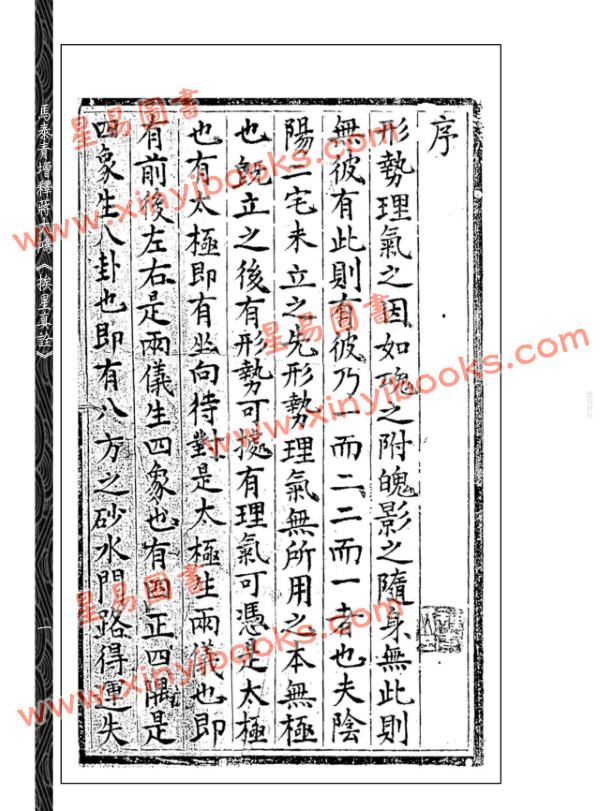 序
形勢理氣之因如魂之附魄影之隨身無此則
無彼有此則有彼乃一而二二而一者也夫陰
陽二宅未立之先形勢理氣無所用之本無極
也既立之後有形勢可據有理氣可憑是太極
也有太極即有坐向待對是太極生兩儀也即
有前後左右是兩儀生四象也有四正四隅是
四象生八卦也即有八方之砂水門路得運失
馬泰青增釋蔣大鴻《挨星真詮》
一
星易圖書
www.xinyibooks.com
星易圖書
www.xinyibooks.com
星易圖書
www.xinyibooks.com